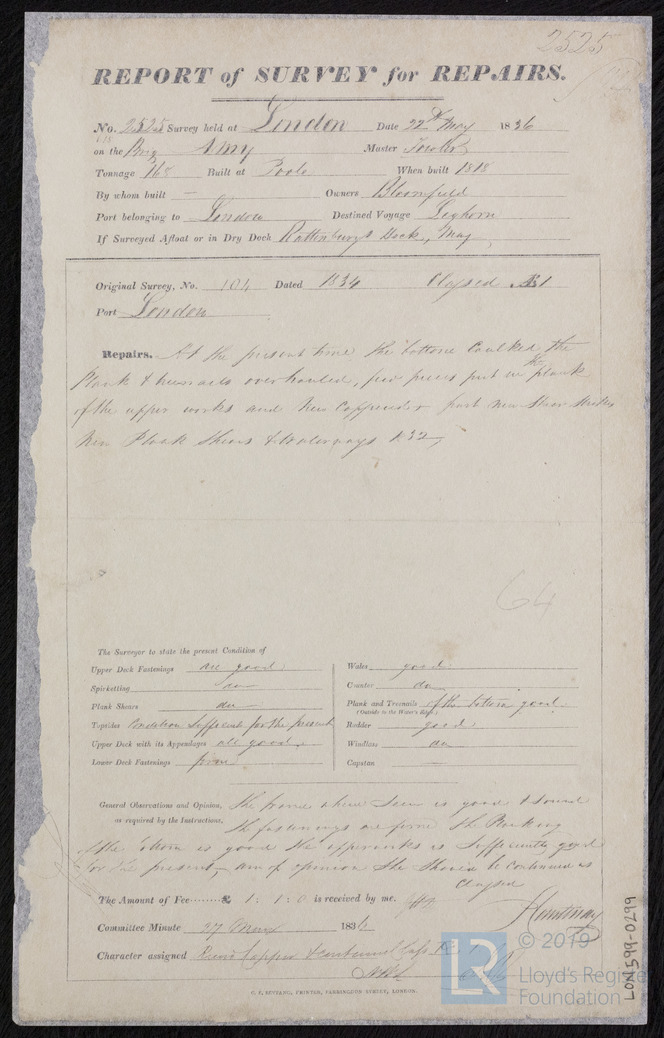 2525
REPORT of SURVEY for REPAIRS.
No. 2525 Survey held at London Date 22nd May 1836
on the Brig Amy Master
Tonnage 168 Built at Poole When built 1818
By whom built — Owners Bloomfield
Port belonging to London Destined Voyage Leghorn
If Surveyed Afloat or in Dry Dock Dock, May
Original Survey, No. 104 Dated 1834 Classed
Port London
Repairs. At the present time the bottom Caulked the
Plank & treenails overhauled, few pieces put in the plank
of the upper works and New Copper part New
New Plank Shears & Waterways
64
The Surveyor to state the present Condition of
Upper Deck Fastenings are good
Spirketting do
Plank Shears do
Topsides Condition Sufficient for the present
Upper Deck with its Appendages all good
Lower Deck Fastenings firm
Wales good
Counter do
Plank and Treenails of the bottom good
(Outside to the Water's Edge)
Rudder good
Windlass do
Capstan —
General Observations and Opinion, The frame where Seen is good & Sound
as required by the Instructions. The fastenings are firm The Planking
of the bottom is good the upperworks is Sufficiently good
for the present, am of opinion She Should be Continued as
Classed
The Amount of Fee ........ £ 1: 1: 0 is received by me.
Committee Minute 27 May 1836
Character assigned
C. F. SEYFANG, PRINTER, FARRINGDON STREET, LONDON.
LON599-0299
LR
© 2019
Lloyd's Register
Foundation